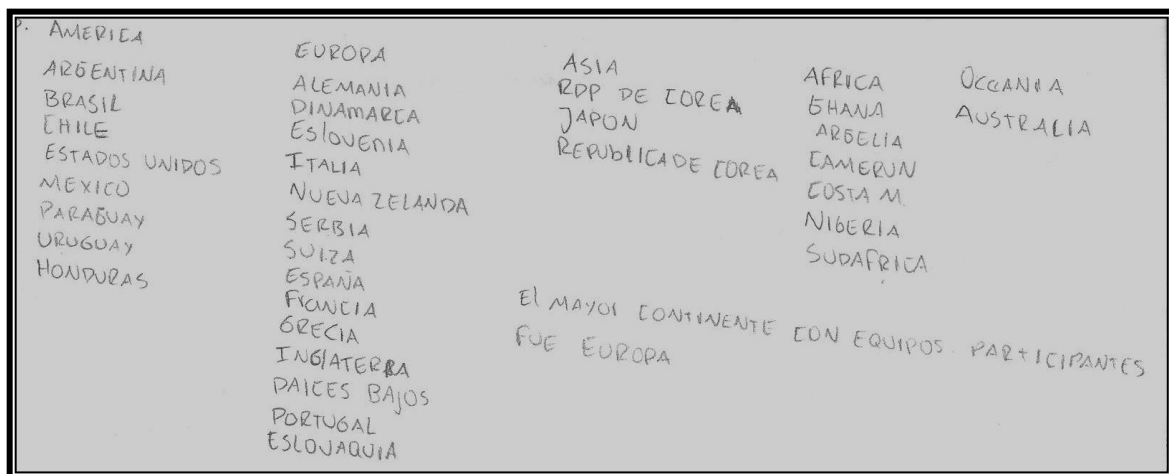 P. AMERICA
ARGENTINA
BRASIL
CHILE
ESTADOS UNIDOS
MEXICO
PARAGUAY
URUGUAY
HONDURAS
EUROPA
ALEMANIA
DINAMARCA
ESLOVENIA
ITALIA
NUEVA ZELANDA
SERBIA
SUIZA
ESPAÑA
FRANCIA
GRECIA
INGLATERRA
PAICES BAJOS
PORTUGAL
ESLOVAQUIA
ASIA
RDP DE COREA
JAPON
REPUBLICA DE COREA
AFRICA
GHANA
ARGELIA
CAMERUN
COSTA M.
NIGERIA
SUDAFRICA
OCCANIA
AUSTRALIA
El MAYOR CONTINENTE CON EQUIPOS PARTICIPANTES
FUE EUROPA